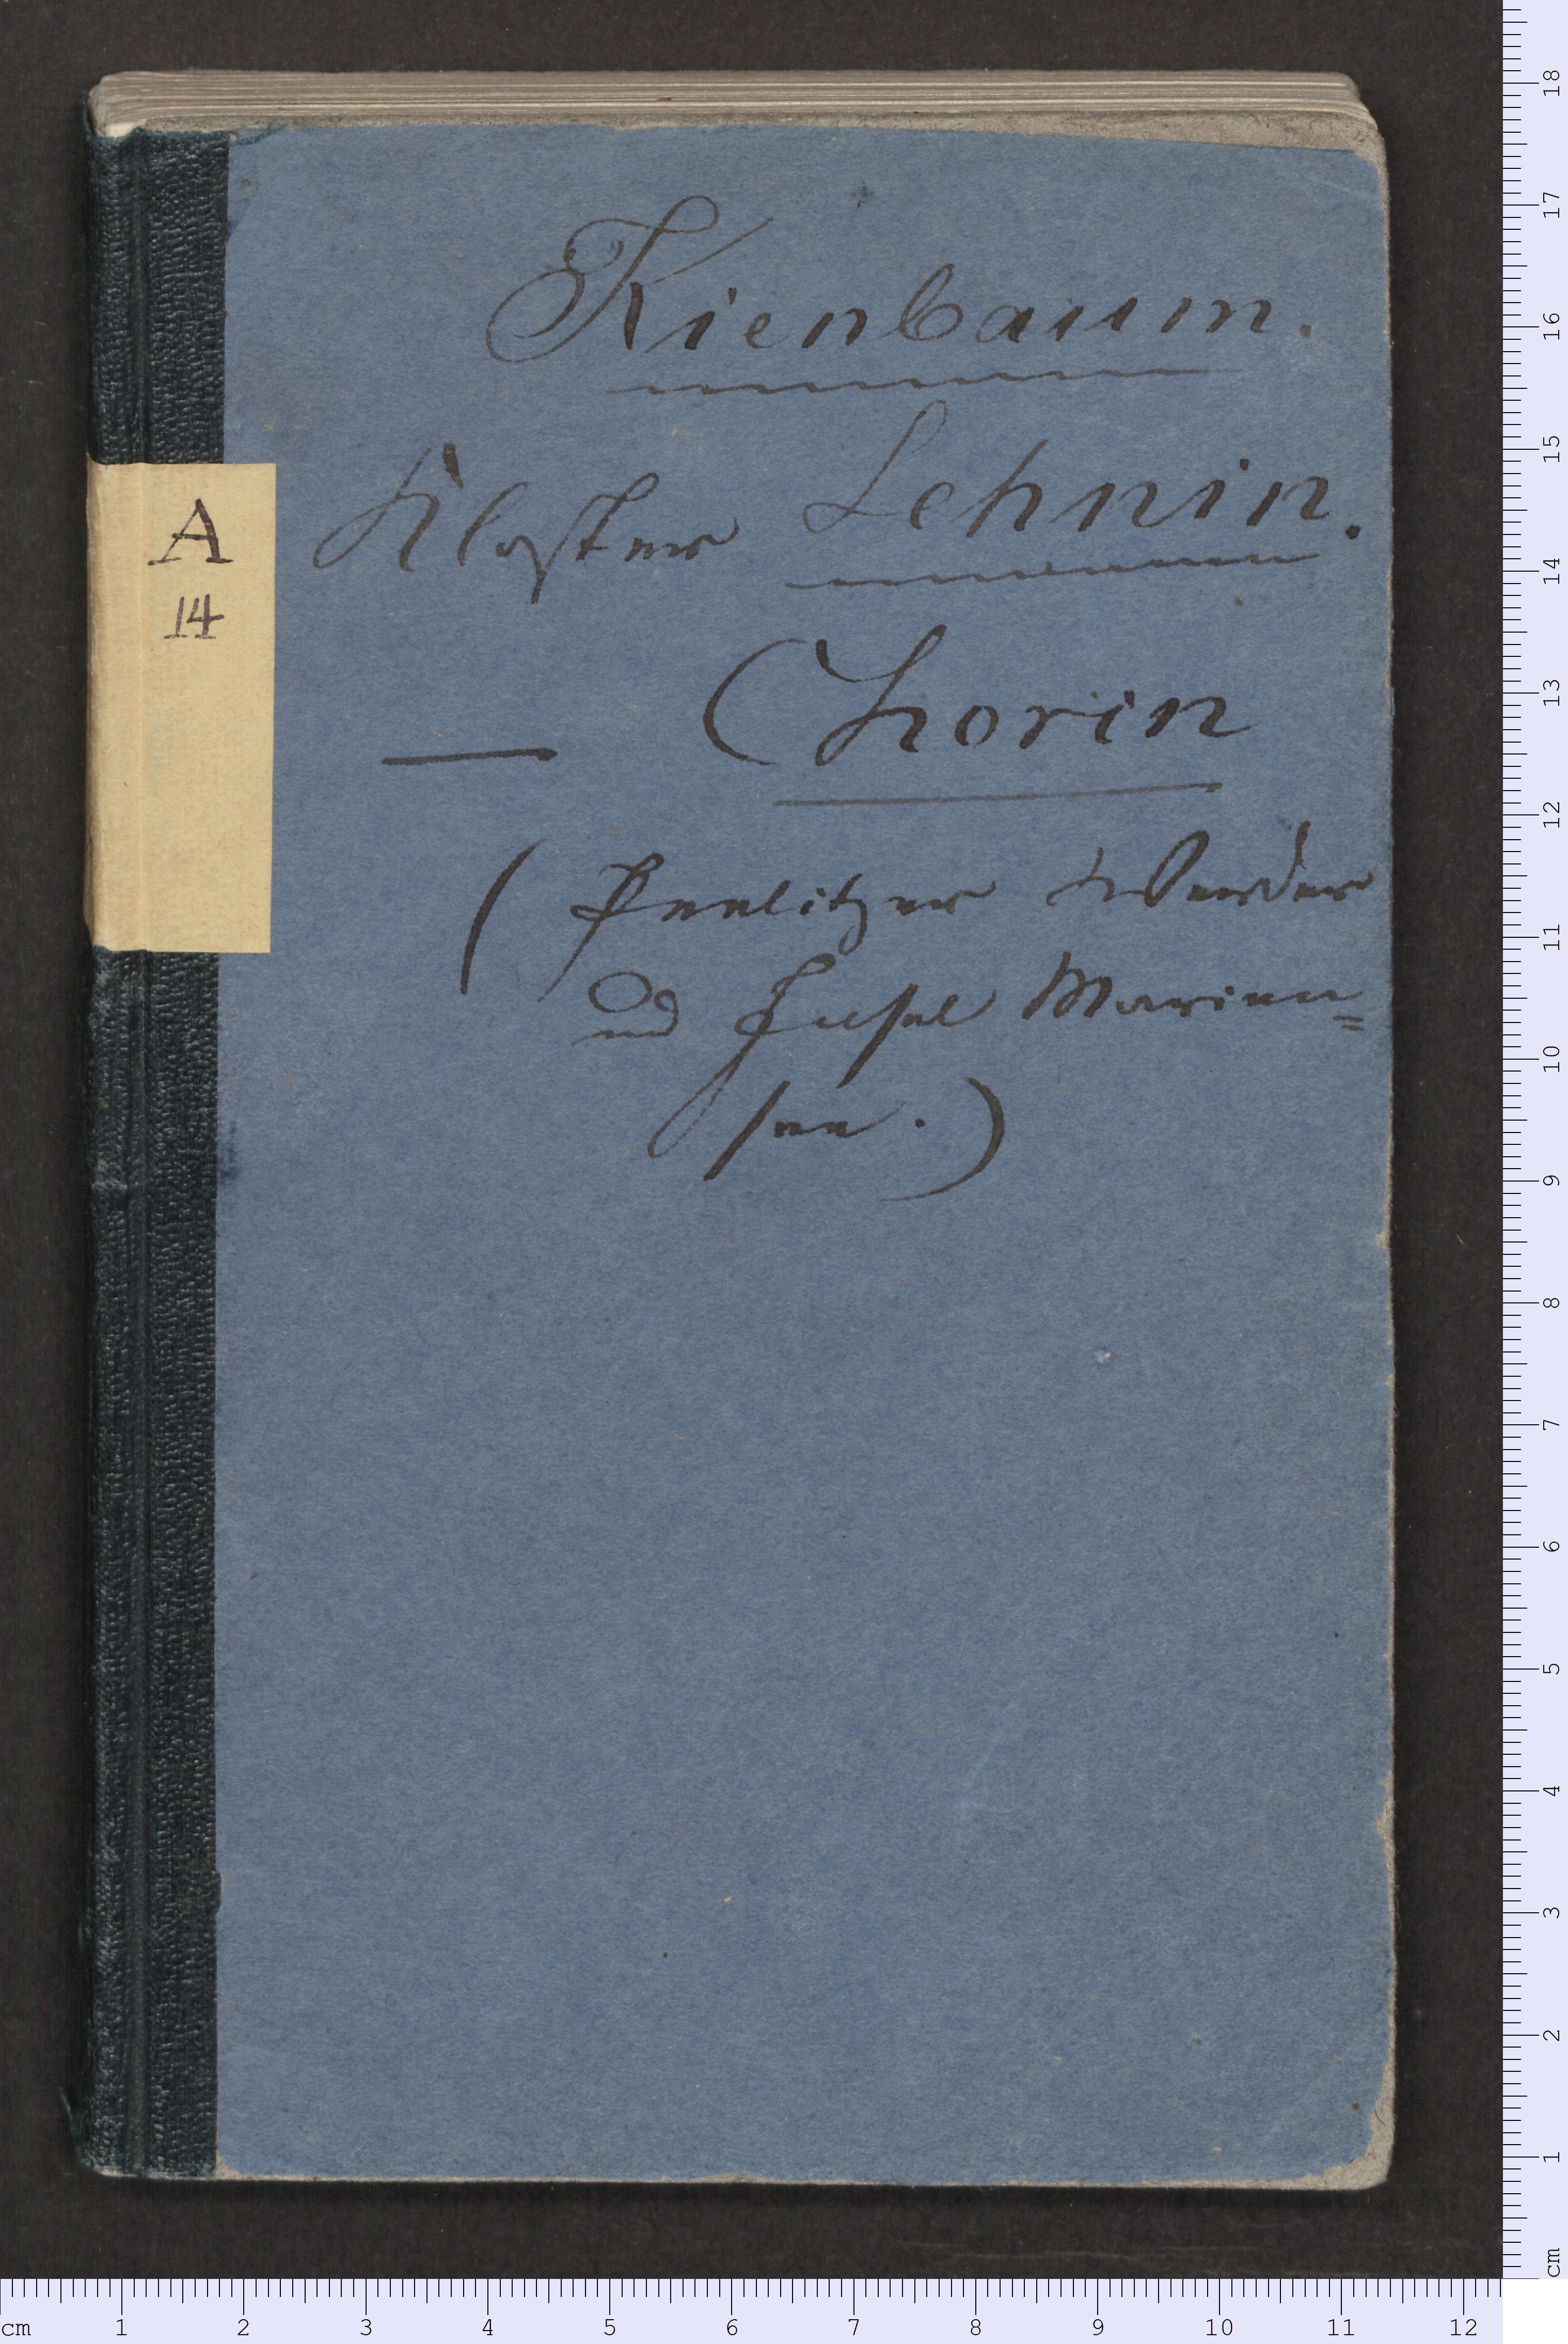 Kienbaum.
Kloster Lehnin.
— Chorin
(Peelitzer Werder
und Insel Marien=
see.)
A
14
18
17
16
15
14
13
12
11
10
9
8
7
6
5
4
3
2
1
cm
cm 1 2 3 4 5 6 7 8 9 10 11 12